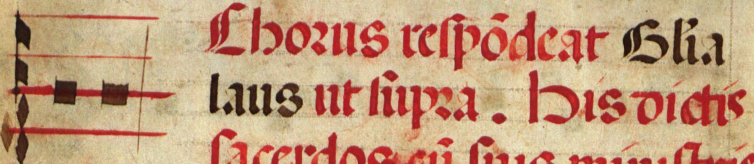 Chorus reſpõdeat Gl̃ia
laus ut ſupra . His dictis
ſacerdos cũ ſuis miniſtris